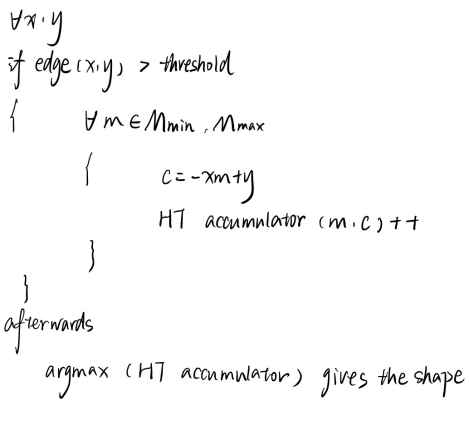 ∀x,y
if edge(x,y) > threshold
{ ∀m∈Mmin, Mmax
{ c=-xm+y
HT accumulator (m,c)++
}
}
afterwards
argmax (HT accumulator) gives the shape